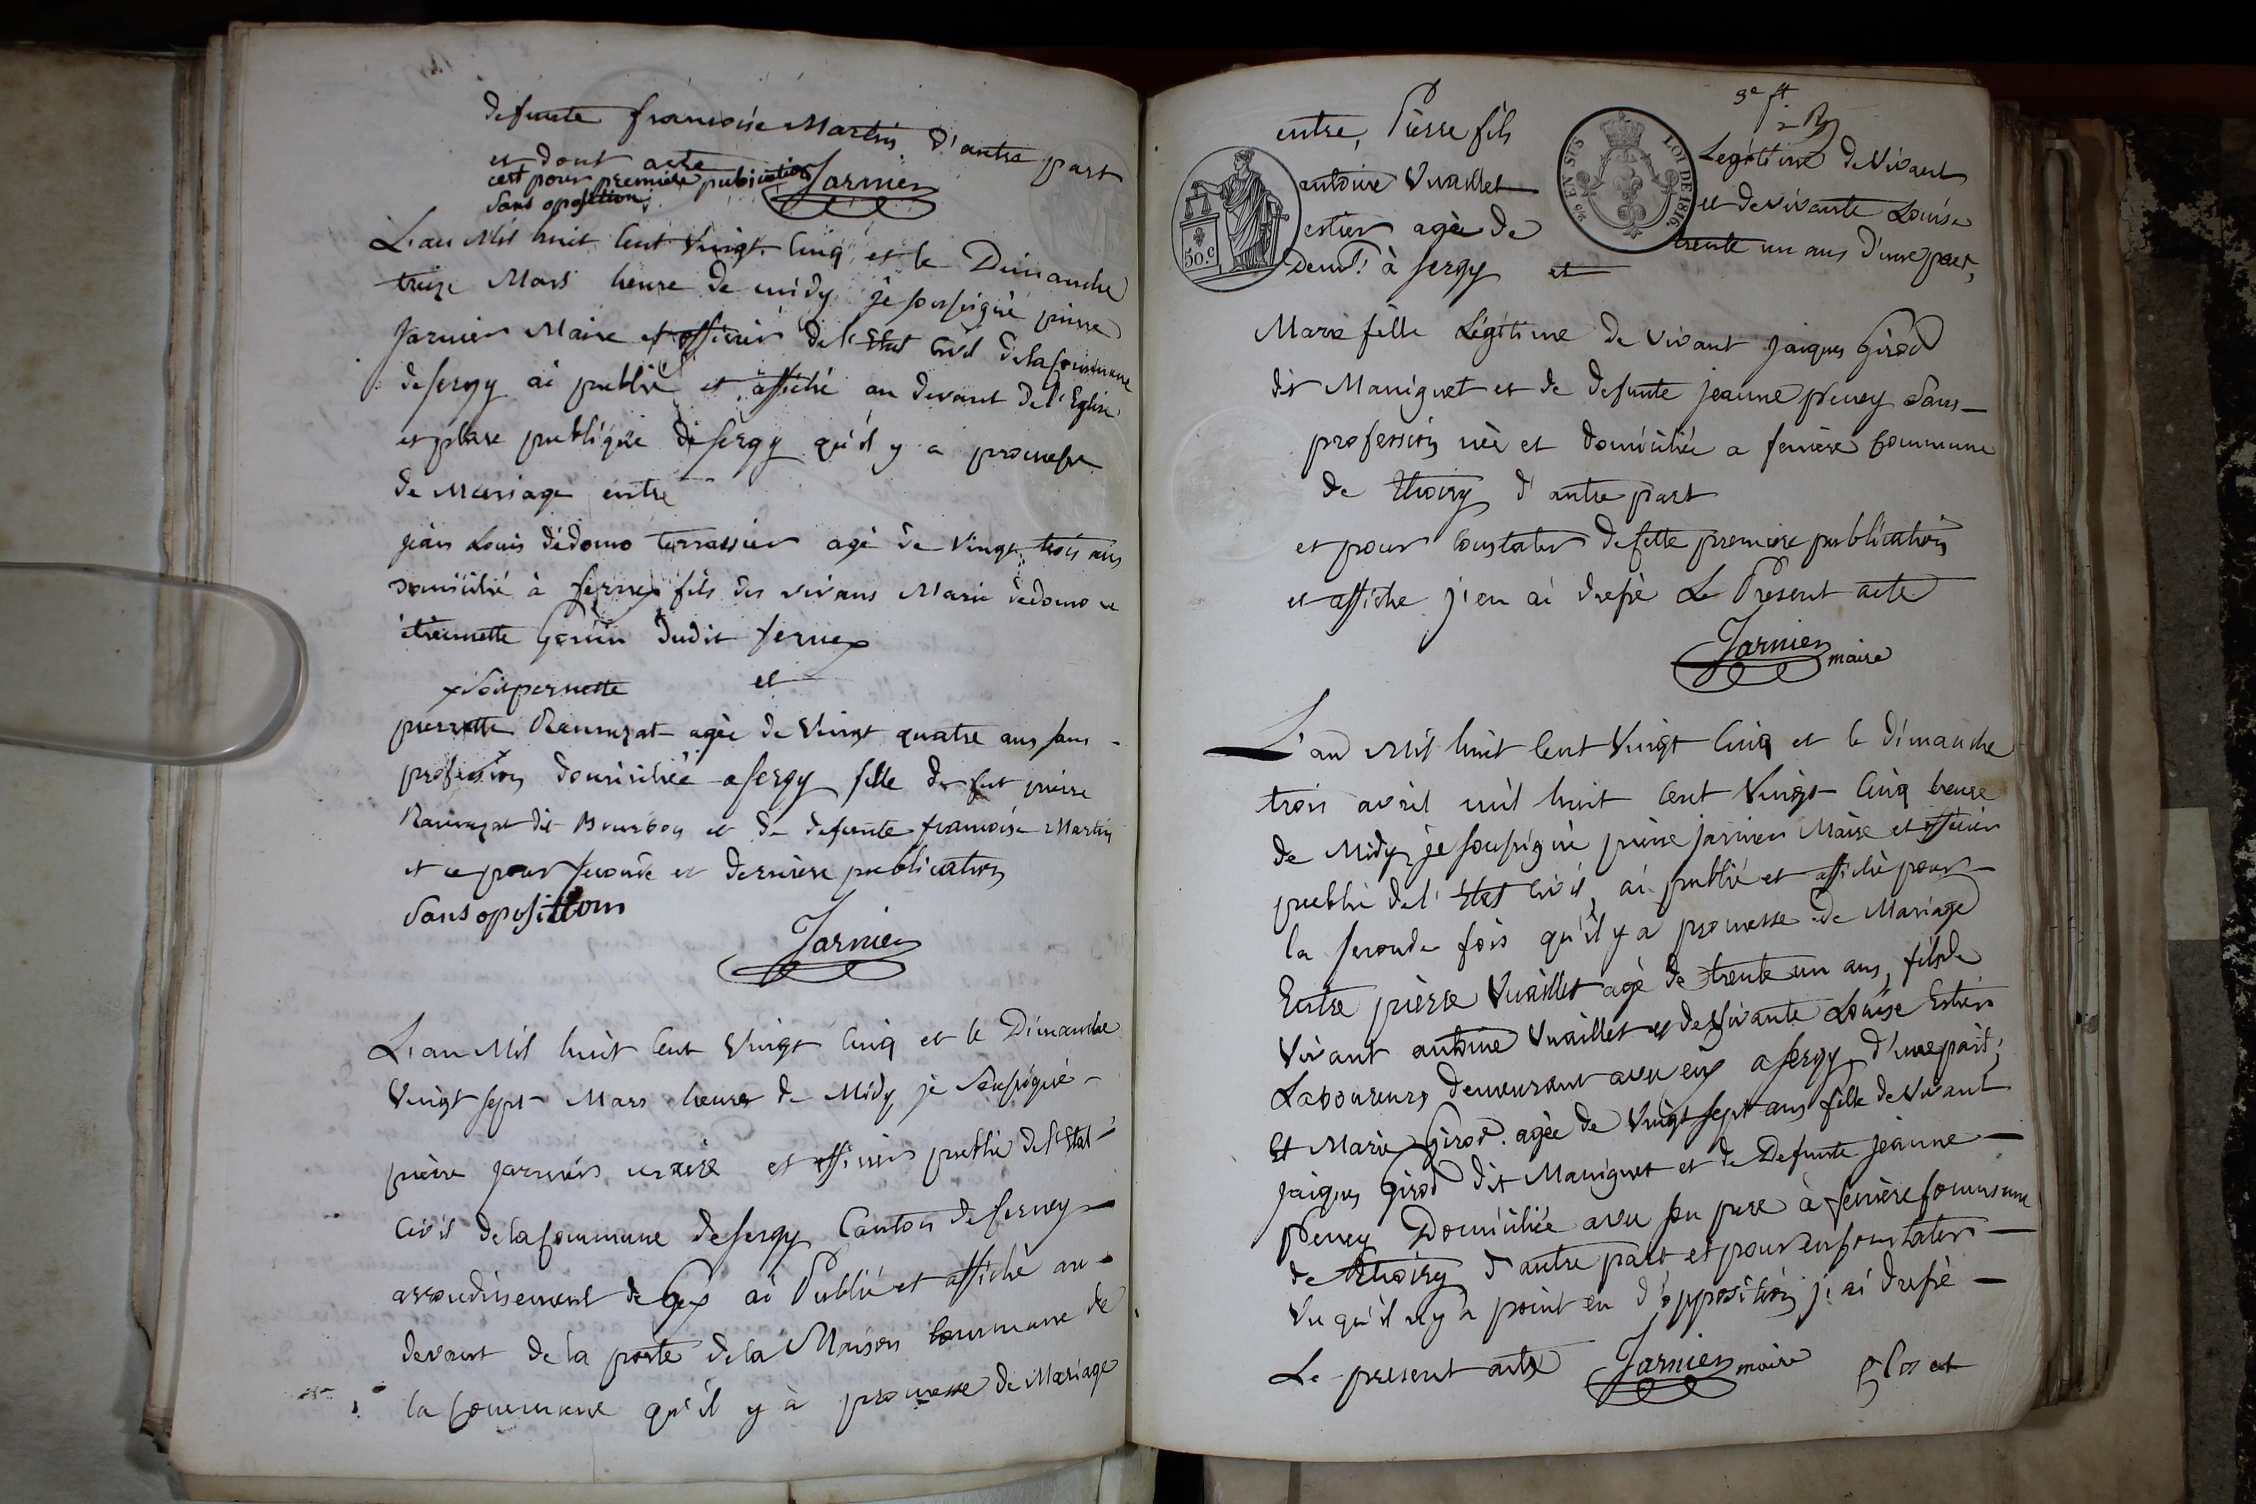 defunte francoise Martin d'autre part
et dont acte
cest pour premiere publication Jarnier
Sans oposition
L'an Mil huit Cent Vingt Cinq et le Dimanche
treize Mars heure de midy je soussigné pierre
Jarnier Maire et officier de l'Etat Civil de la Commune
de sergy ai publié et affiché au devant de l'Eglise
et place publique de sergy qu'il y a promesse
de Mariage entre
jean Louis dédomo terrassier agé de Vingt trois ans
domicilié à fernex fils des vivans Marie dedomo et
etiennette dudit fernex
x Soit pernette et
pierrette Ravinzat agée de Vingt quatre ans sans
profession domiciliée a sergy fille de feu pierre
Ravinzat dit Bourbon et de defunte francoise Martin
et ce pour seconde et derniere publication
Sans oposition
Jarnier
L'an Mil huit Cent Vingt Cinq et le Dimanche
Vingt sept Mars heure de Midy je Soussigné
pierre jarnier maire et officier public de l'Etat
Civil de la Commune de sergy Canton de ferney
arrondissement de Gex ai Publié et affiché au
devant de la porte de la Maison Commune de
la Commune qu'il y à promesse de Mariage
3e ft
entre, Pierre fils Legitime de Vivant
antoine Vuaillet et de vivante Louise
estier agée de trente un ans d'une part,
Demt à sergy et
50.C
EN SUS
LOI DE 1816.
Marie fille Légitime de Vivant jaiques Girod
dit Maniguet et de defunte jeanne peney Sans
profession née et domiciliée a feniere Commune
de Thoiry d'autre part
et pour Constater de sette premiere publication
et affiche j'en ai dressé Le Présent acte
Jarnier maire
L'an Mil huit Cent Vingt Cinq et le dimanche
trois avril mil huit Cent Vingt Cinq heure
de Midy, je soussigné pierre jarnier Maire et officier
public de l'Etat Civil, ai publié et affiché pour
la seconde fois qu'il y a promesse de Mariage
Entre pierre Vuaillet agé de trente un ans, fils de
Vivant antoine Vuaillet et de Vivante Louise Estier
Laboureurs demeurant avec eux a sergy, d'une part;
Et Marie Girod agée de Vingt sept ans fille de Vivant
jaiques Girod dit Maniguet et de Defunte jeanne
Peney Domiciliée avec son pere à feniere Commune
de Thoiry d'autre part et pour en Constater
Vu qu'il n'y a point eu d'opposition j'ai dressé
Le present acte Jarnier maire Clos et